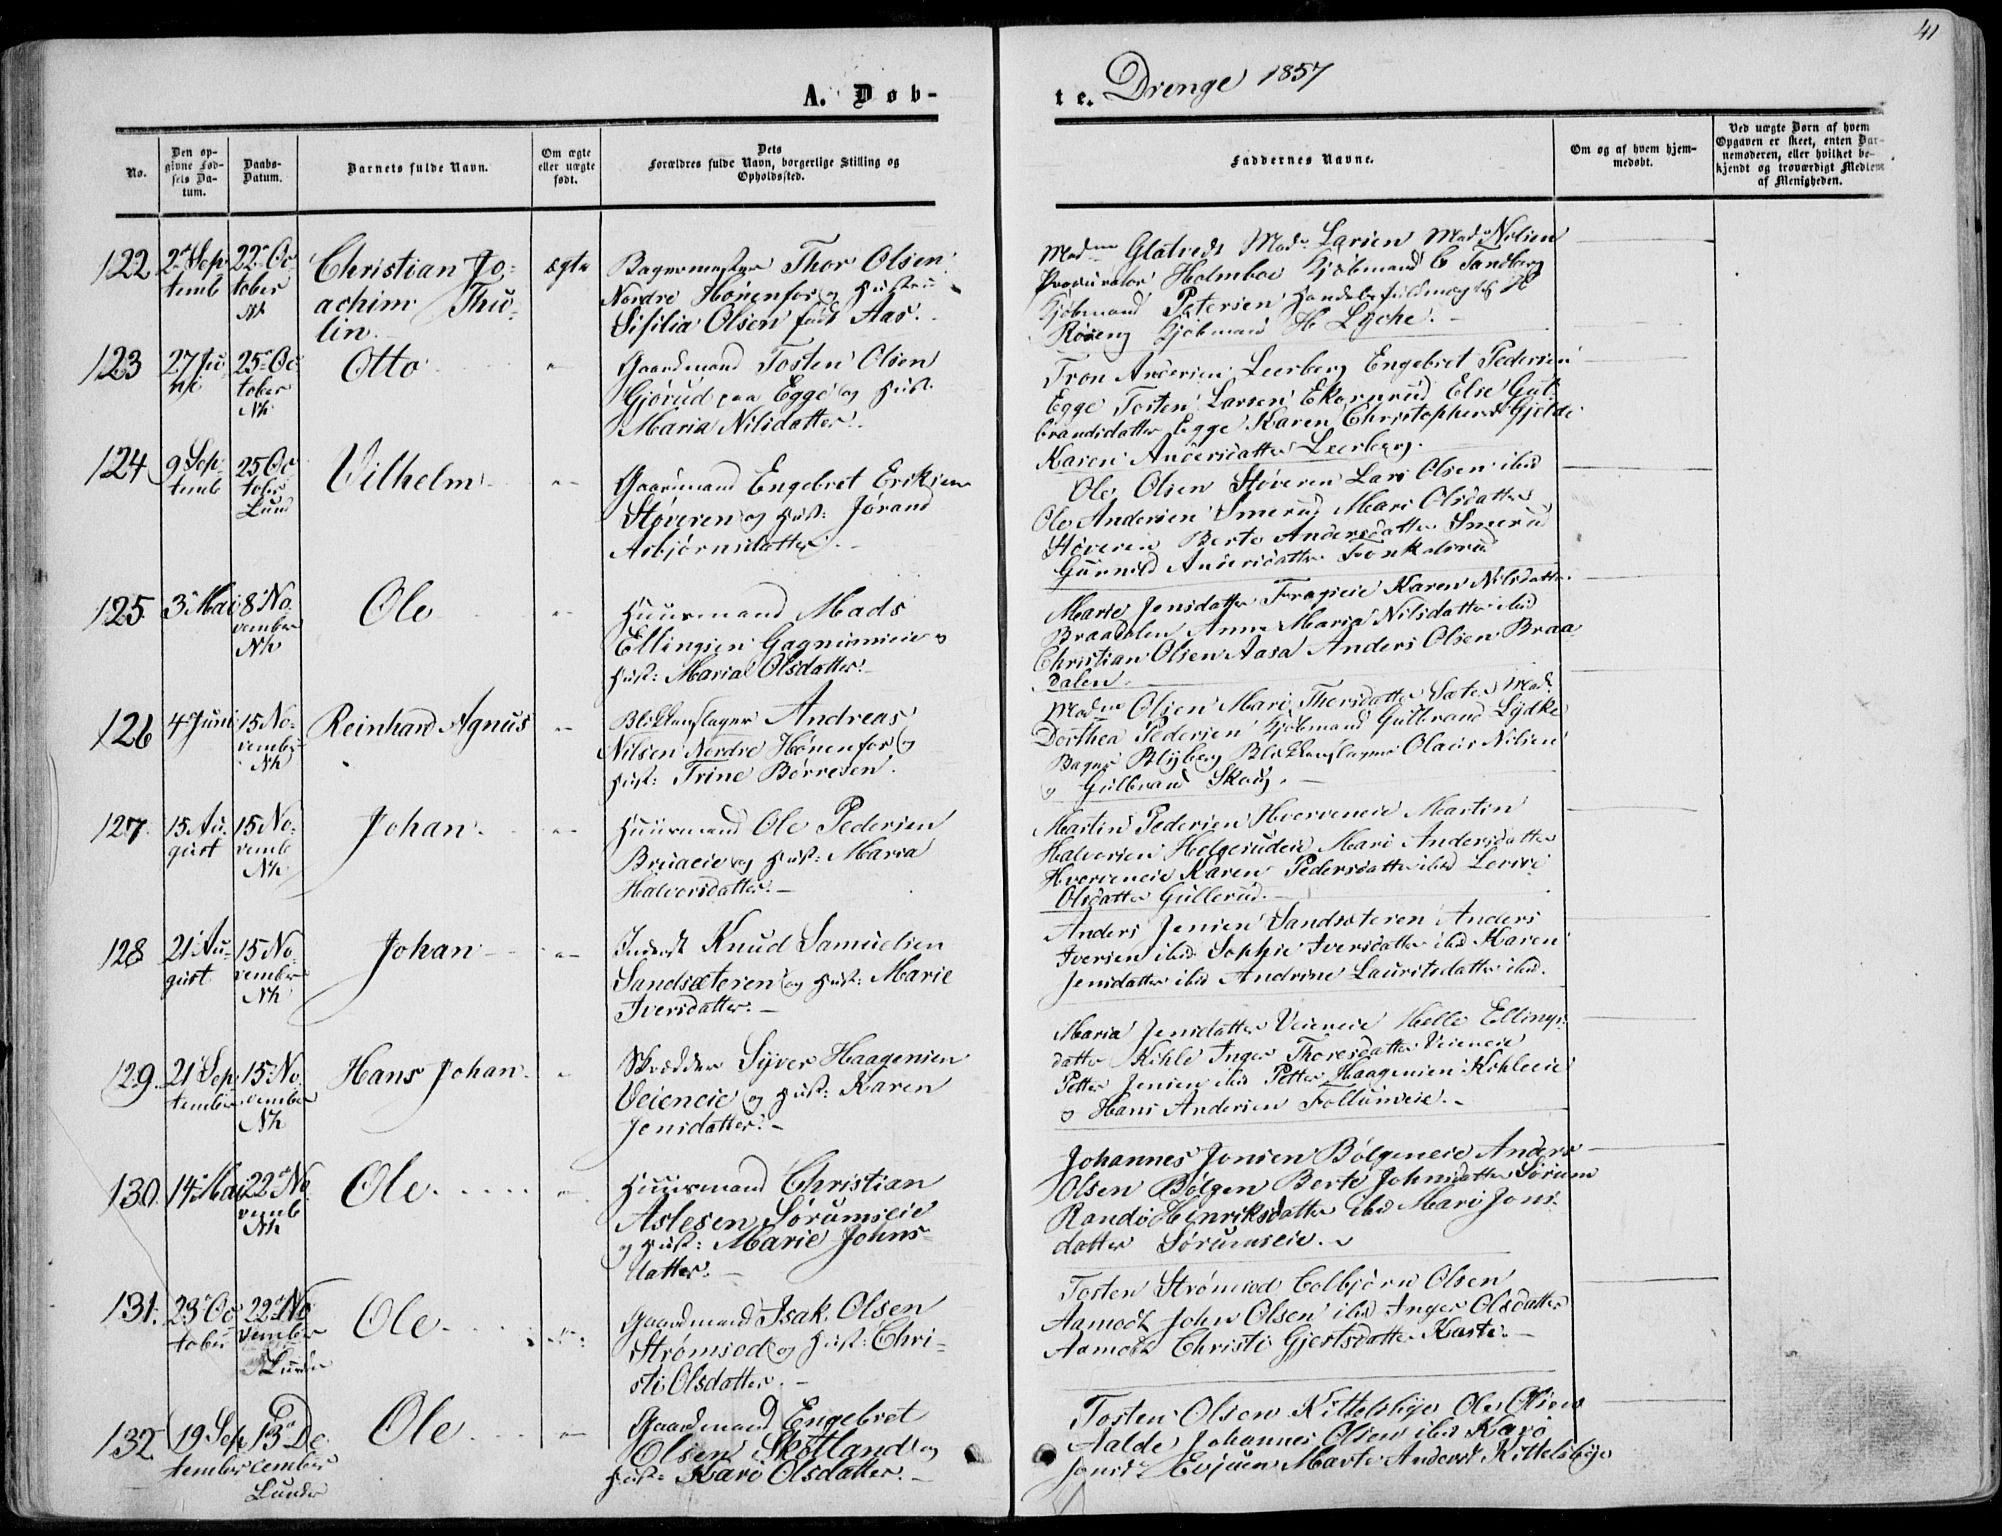 41
A. Døb-
te. Drenge 1857
No.
Den op-
givne Fød-
sels Da-
tum.
Daabs-
Datum.
Barnets fulde Navn.
Om ægte
eller uægte
født.
Dets
Forældres fulde Navn, borgerlige Stilling og
Opholdssted.
Faddernes Navne.
Om og af hvem hjem-
medøbt.
Ved uægte Børn af hvem
Opgaven er skeet, enten Bar-
nemoderen, eller hvilket be-
kjendt og troværdigt Medlem
af Menigheden.
122
2 Sep
temb
22 Oc
tober
Nh
Christian Jo-
achim Thu-
lin.
ægte
Bagermester Thor Olsen
Nordre Hønenfos og Hustru
Sisilia Olsen født Aas.
Madme Glatvedt Mad. Larsen Mad. Nilsen
Procurator Holmboe Kjøbmand C Tandberg
Kjøbmand Petersen Handelsfuldmægtig H
Røseng Kjøbmand H Lyche.
123
27 Ju
ni
25 Oc
tober
Nh
Otto
"
Gaardmand Tosten Olsen
Gjørud paa Egge og Hust.
Maria Nilsdatter.
Tron Andersen Leerberg Engebret Pedersen
Egge Tosten Larsen Ekornrud Else Gul-
brandsdatter Egge Karen Christophersd Gjelde
Karen Andersdatter Leerberg.
124
9 Sep-
temb
25 Oc
tober
Lund
Vilhelm
"
Gaardmand Engebret Eriksen
Støveren og Hust: Jørand
Asbjørnsdatter.
Ole Olsen Støveren Lars Olsen ibid
Ole Andersen Smerud Mari Olsdatter
Støveren Berte Andersdatter Smerud
Gunnild Andersdatter
125
3 Mai
8 No
vember
Nh
Ole
"
Huusmand Mads
Ellingsen Gagnumeie og
Hust: Maria Olsdatter.
Marie Jensdatter Karen Nilsdatter
Braadalen Anne Maria Nilsdatter ibid
Christian Olsen Aasa Anders Olsen Braa
dalen.
126
4 Juni
15 No-
vember
Nh
Reinhard Agnus
"
Blikkenslager Andreas
Nilsen Nordre Hønenfos og
Hust: Trine Børresen.
Madme Olsen Mari Thorsdatter Sæter Mad.
Dorthea Pedersen Kjøbmand Gulbrand Lydke
Bager Blyberg Blikkenslager Olaus Nilsen
og Gulbrand Skoug.
127
15 Au-
gust
15 No-
vemb
Nh
Johan
"
Huusmand Ole Pedersen
Bruaeie og Hust: Maria
Halvorsdatter.
Martin Pedersen Hverveneie Martin
Halvorsen Helgerudeie Mari Andersdatter
Hverveneie Karen Pedersdatter ibid
Olsdatter Gullerud.
128
21 Au-
gust
15 No-
vember
Nh
Johan
"
Inderst Knud Samuelsen
Sandsæteren og Hust: Marie
Iversdatter.
Anders Jensen Sandsæteren Anders
Iversen ibid Sophie Iversdatter ibid Karen
Jensdatter ibid Andrine Lauritsdatter ibid.
129.
21 Sep
tember
15 No
vember
Nh
Hans Johan.
"
Skredder Syver Haagensen
Veieneie og Hust: Karen
Jensdatter.
Maria Jensdatter Veieneie Helle Ellings-
datter Kihle Inger Thoresdatter Veieneie
Petter Jensen ibid Petter Haagensen Kihleeie
og Hans Andersen Follumeie.
130.
14 Mai
22 No
vemb
Nh
Ole.
"
Huusmand Christian
Aslesen Sørumseie
og Hust: Marie Johns-
datter.
Johannes Jonsen Bølgeneie Anders
Olsen Bølgen Berte Johnsdatter Sørum
Randi Henriksdatter ibid Mari Jons-
datter Sørumseie.
131.
23 Oc
tober
22 No
vember
Lunder
Ole.
"
Gaardmand Isak Olsen
Strømsod og Hust: Chri-
sti Olsdatter.
Tosten Strømsod Colbjørn Olsen
Aamodt John Olsen ibid Inger Olsdatter
Aamodt Christi Gjertsdatter
132
19 Sep
tember
13 De
cember
Lunder
Ole
"
Gaardmand Engebret
Olsen Skotland og
Hust: Kari Olsdatter.
Tosten Olsen Kittelsbye Ole Olsen
Aalde Johannes Olsen ibid Kari
Jonsd Evjuen Marte Andersd Kittelsbye